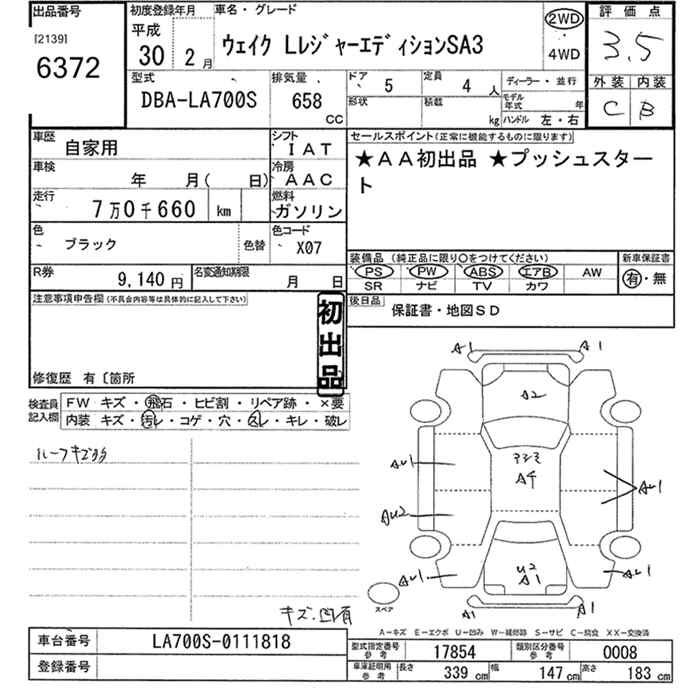 出品番号
[2139]
6372
初度登録年月
平成
30 2 月
車名・グレード
ウェイク Lレジャーエディション SA3
2WD
4WD
評価点
3.5
外装 内装
C B
型式
DBA-LA700S
排気量
658
CC
ドア
5
定員
4 人
ディーラー・並行
形状
積載
kg
モデル年式 年
ハンドル 左・右
車歴
自家用
シフト
IAT
車検
年 月( 日)
冷房
AAC
走行
7万0千660 km
燃料
ガソリン
色
ブラック
色替
色コード
X07
R券
9,140 円
名変通知期限
月 日
セールスポイント(正常に機能するものに限ります)
★AA初出品 ★プッシュスター
ト
装備品(純正品に限り○をつけてください)
新車保証書
PS PW ABS エアB AW
SR ナビ TV カワ
有・無
後日品
保証書・地図SD
注意事項申告欄(不具合内容等は具体的に記入して下さい)
初出品
修復歴 有〔箇所
検査員
記入欄
FW キズ・飛石・ヒビ割・リペア跡・×要
内装 キズ・汚レ・コゲ・穴・スレ・キレ・破レ
ルーフキズ
キズ、凹有
A1 A1
A2
AU1
A4
AU1
AU2
U2
A1
AU1 AU1
A1 A1
スペア
A-キズ E-エクボ U-凹み W-補修跡 S-サビ C-腐食 XX-交換済
車台番号
LA700S-0111818
登録番号
型式指定番号
参考
17854
類別区分番号
参考
0008
車庫証明用
参考
長さ 339 cm
幅 147 cm
高さ 183 cm